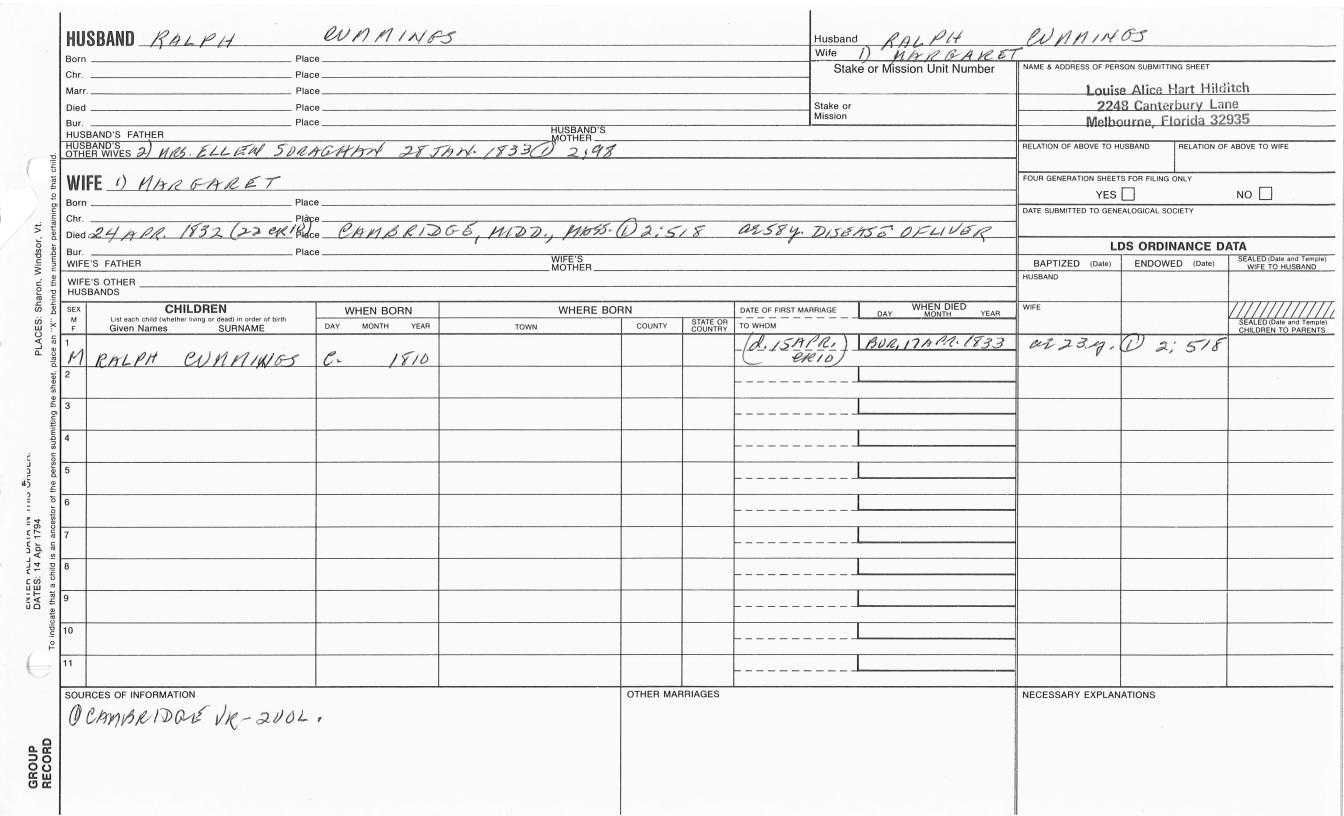 HUSBAND RALPH CUMMINGS
Born Place
Chr. Place
Marr. Place
Died Place
Bur. Place
HUSBAND'S FATHER HUSBAND'S MOTHER
HUSBAND'S OTHER WIVES 2) MRS. ELLEN SORAGHAN 28 JAN. 1833 ① 2:98
Husband RALPH CUMMINGS
Wife 1) MARGARET
Stake or Mission Unit Number
Stake or Mission
NAME & ADDRESS OF PERSON SUBMITTING SHEET
Louise Alice Hart Hilditch
2248 Canterbury Lane
Melbourne, Florida 32935
RELATION OF ABOVE TO HUSBAND RELATION OF ABOVE TO WIFE
FOUR GENERATION SHEETS FOR FILING ONLY
YES NO
DATE SUBMITTED TO GENEALOGICAL SOCIETY
WIFE 1) MARGARET
Born Place
Chr. Place
Died 24 APR. 1832 (22 CR10) Place CAMBRIDGE, MIDD., MASS. ① 2:518 ae 58y. DISEASE OF LIVER
Bur. Place
WIFE'S FATHER WIFE'S MOTHER
WIFE'S OTHER HUSBANDS
LDS ORDINANCE DATA
BAPTIZED (Date) ENDOWED (Date) SEALED (Date and Temple) WIFE TO HUSBAND
HUSBAND
WIFE
SEALED (Date and Temple) CHILDREN TO PARENTS
SEX M F
CHILDREN
List each child (whether living or dead) in order of birth
Given Names SURNAME
WHEN BORN
DAY MONTH YEAR
WHERE BORN
TOWN COUNTY STATE OR COUNTRY
DATE OF FIRST MARRIAGE
TO WHOM
WHEN DIED
DAY MONTH YEAR
1 M RALPH CUMMINGS C. 1810 (d. 15 APR. CR10) BUR. 17 APR. 1833 ae 23y. ① 2:518
2
3
4
5
6
7
8
9
10
11
SOURCES OF INFORMATION
① CAMBRIDGE VR - 2 VOL.
OTHER MARRIAGES
NECESSARY EXPLANATIONS
PLACES: Sharon, Windsor, Vt.
DATES: 14 Apr 1794
To indicate that a child is an ancestor of the person submitting the sheet, place an "X" behind the number pertaining to that child.
GROUP RECORD